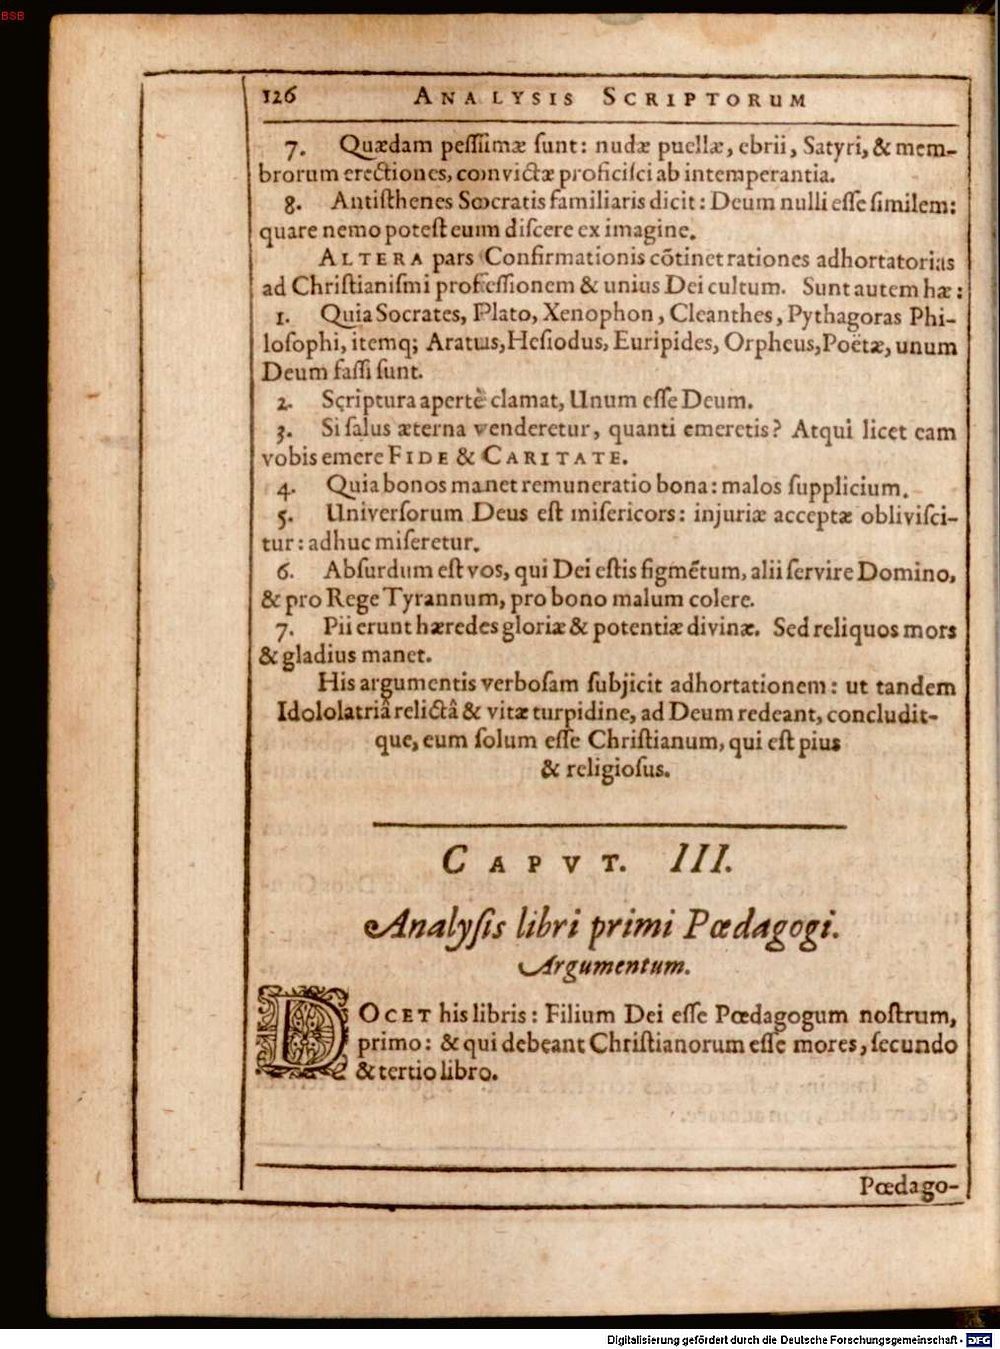 BSB
126 ANALYSIS SCRIPTORUM
7. Quædam peſſimæ ſunt: nudæ puellæ, ebrii, Satyri, & mem-
brorum erectiones, convictæ proficiſci ab intemperantia.
8. Antiſthenes Socratis familiaris dicit: Deum nulli eſſe ſimilem:
quare nemo poteſt eum diſcere ex imagine.
ALTERA pars Confirmationis cõtinet rationes adhortatorias
ad Chriſtianiſmi profeſſionem & unius Dei cultum. Sunt autem hæ:
1. Quia Socrates, Plato, Xenophon, Cleanthes, Pythagoras Phi-
loſophi, itemq; Aratus, Heſiodus, Euripides, Orpheus, Poëtæ, unum
Deum faſſi ſunt.
2. Scriptura apertè clamat, Unum eſſe Deum.
3. Si ſalus æterna venderetur, quanti emeretis? Atqui licet eam
vobis emere FIDE & CARITATE.
4. Quia bonos manet remuneratio bona: malos ſupplicium.
5. Univerſorum Deus eſt miſericors: injuriæ acceptæ obliviſci-
tur: adhuc miſeretur.
6. Abſurdum eſt vos, qui Dei eſtis figmẽtum, alii ſervire Domino,
& pro Rege Tyrannum, pro bono malum colere.
7. Pii erunt hæredes gloriæ & potentiæ divinæ. Sed reliquos mors
& gladius manet.
His argumentis verboſam ſubjicit adhortationem: ut tandem
Idololatriâ relictâ & vitæ turpidine, ad Deum redeant, concludit-
que, eum ſolum eſſe Chriſtianum, qui eſt pius
& religioſus.
CAPVT. III.
Analyſis libri primi Pœdagogi.
Argumentum.
DOCET his libris: Filium Dei eſſe Pœdagogum noſtrum,
primo: & qui debeant Chriſtianorum eſſe mores, ſecundo
& tertio libro.
Pœdago-
Digitalisierung gefördert durch die Deutsche Forschungsgemeinschaft - DFG